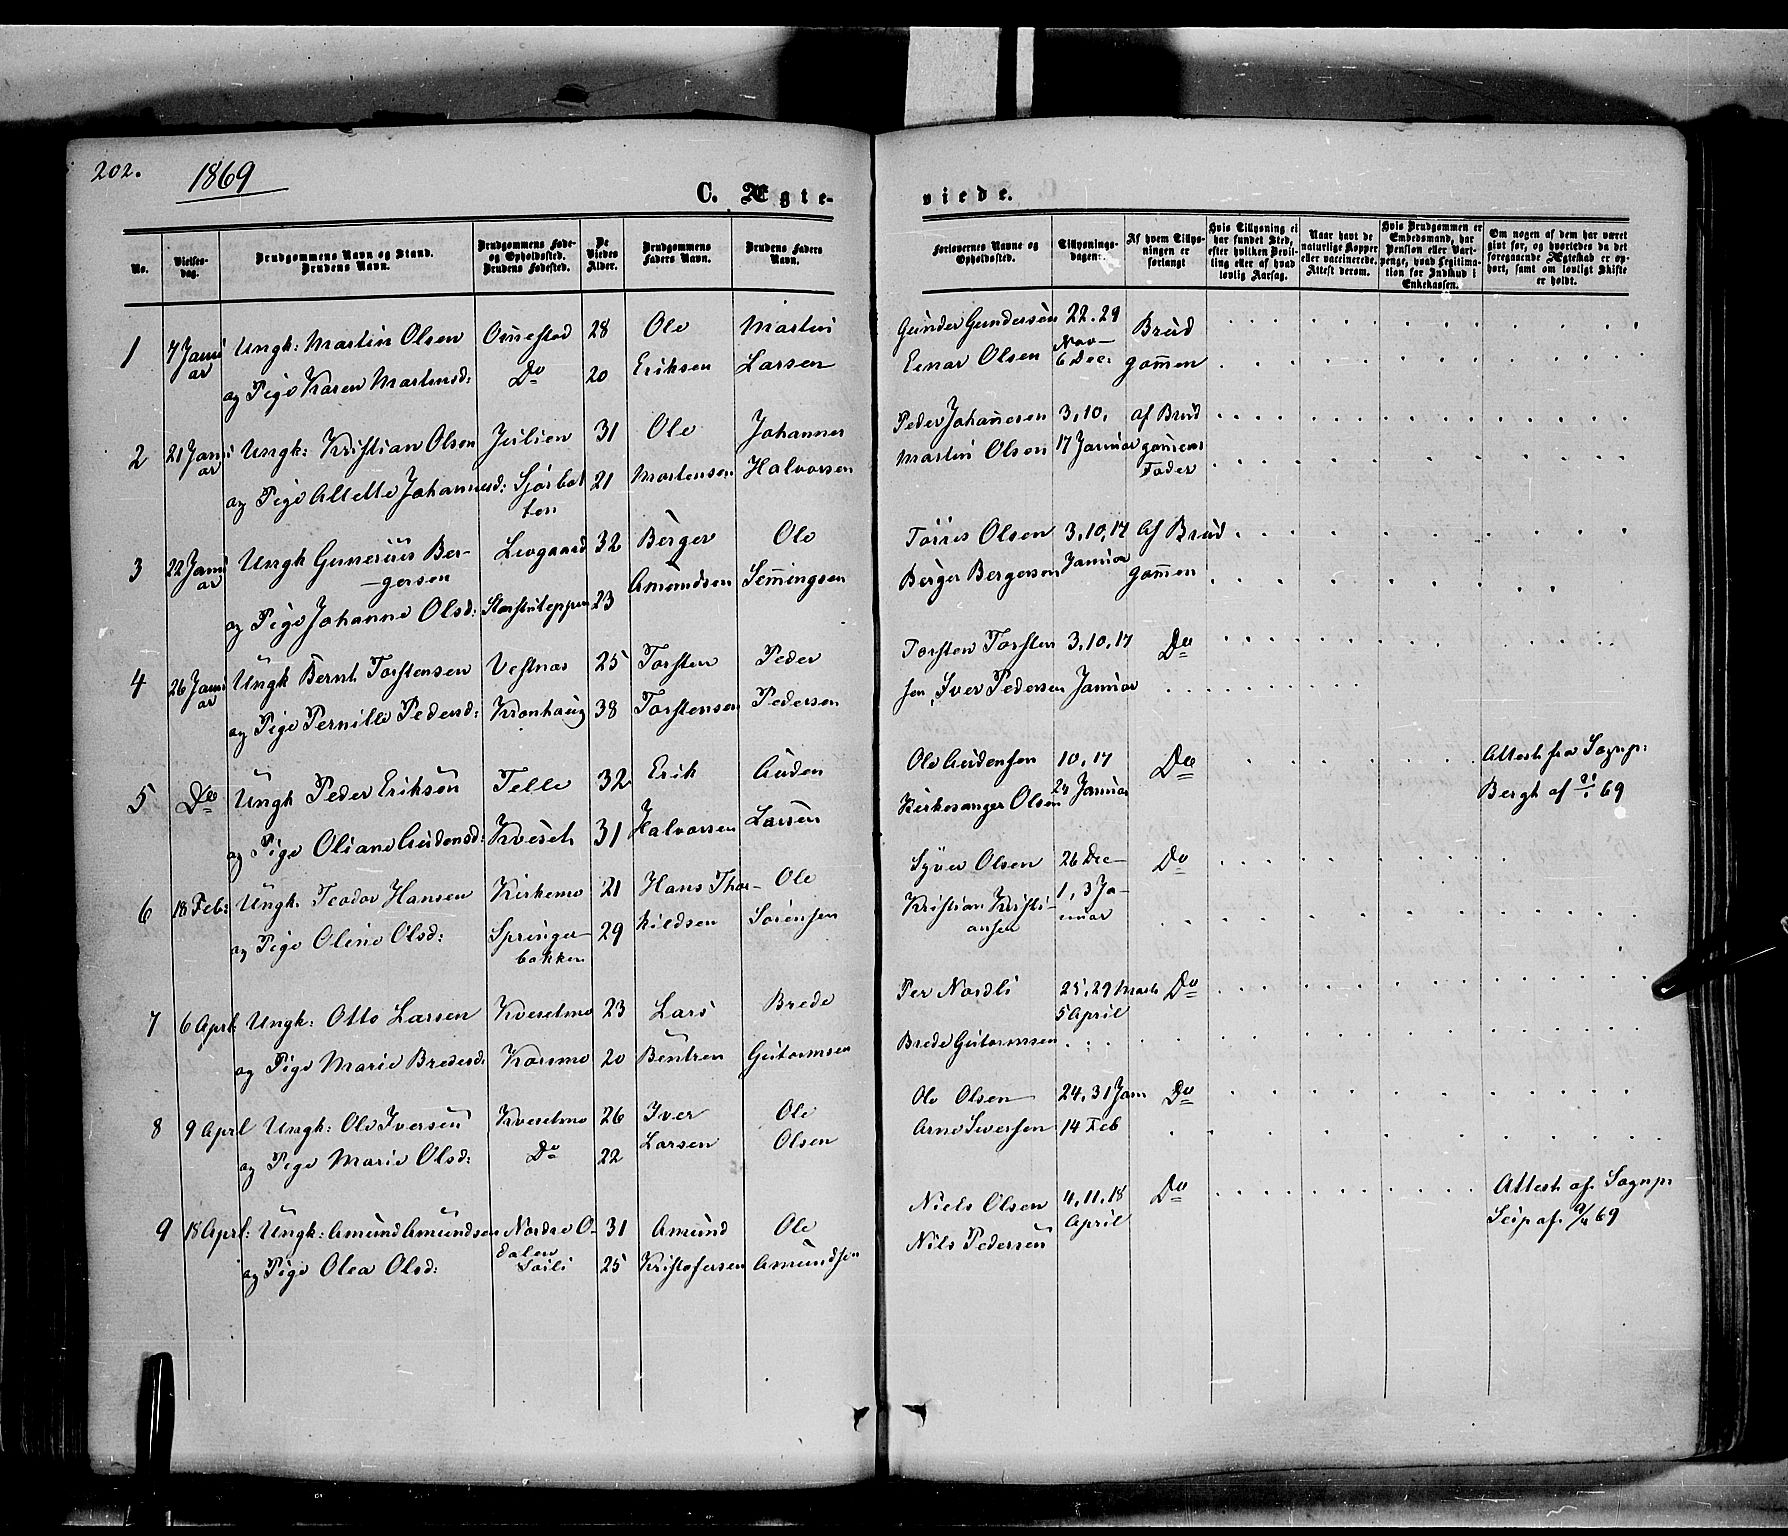 202.
1869
C. Ægte-
viede.
No.
Vielses-
dag.
Brudgommens Navn og Stand.
Brudens Navn.
Brudgommens Føde-
og Opholdssted.
Brudens Fødested.
De
Viedes
Alder.
Brudgommens
Faders Navn.
Brudens Faders
Navn.
Forlovernes Navne og
Opholdssted.
Tillysnings-
dagene.
Af hvem Tillys-
ningen er
forlangt
Hvis Tillysning ei
har fundet Sted,
efter hvilken Bevil-
ling eller af hvad
lovlig Aarsag.
Naar havt de
naturlige Kopper
eller vaccinerede.
Attest derom.
Hvis Brudgommen er
Embedsmand, har
Pension eller Vart-
penge, hvad Legitima-
tion for Indskud i
Enkekassen.
Om nogen af dem har været
gift før, og hvorledes da det
foregaaende Ægteskab er op-
hørt, samt om lovligt Skifte
er holdt.
1 7 Janu Ungk: Martin Olsen Ounestad 28 Ole Martin
ar og Pige Karen Martinsd: Do 20 Eriksen Larsen
Gunder Gundersen 22.29 Brud
Nov-
Einar Olsen 6 Dec: gommen
2 21 Janu Ungk: Kristian Olsen Julien 31 Ole Johannes
ar og Pige Alette Johannesd: Sjørbot 21 Mortensen Halvorsen
ten
Peder Johannesen 3,10, af Brud
Martin Olsen 17 Januar gomens
Fader
3 22 Janu Ungk Gunerius Ber- Levgaard 32 Berger Ole
ar -gersen Amundsen Semingsen
og Pige Johanne Olsd: 23
Torris Olsen 3,10,17 Af Brud
Berger Bergersen Januar gommen
4 26 Janu Ungk Bernt Torstensen Vestnas 25 Torsten Peder
ar og Pige Pernille Pedersd: Kronhaug 38 Torstensen Pedersen
Torsten Torsten 3,10,17 Do
sen, Iver Pedersen Januar
5 Do Ungk Peder Eriksen Telle 32 Erik Auden
og Pige Oliane Audensd: Kveset 31 Halvorsen Larsen
Ole Audensen 10,17 Do Attest fra Sognp:
Kirkesanger Olsen 24 Januar Bergh af 21/1 69
6 18 Feb: Ungk. Teodor Hansen Kirkemo 21 Hans Thor- Ole
og Pige Oline Olsd: Springer- 29 kildsen Sørensen
bakken
Syver Olsen 26 Dec- Do
Kristian Kristi- 1,3 Ja-
ansen nuar
7 6 April Ungk: Otto Larsen Kveselmo 23 Lars Brede
og Pige Marie Bredesd: Korsmo 20 Bentsen Gutormsen
Per Nordli 25,29 Marts Do
5 April
Brede Gutormsen
8 9 April Ungk: Ole Iversen Kveselmo 26 Iver Ole
og Pige Marie Olsd: Do 22 Larsen Olsen
Ole Olsen 24,31 Jan Do
Arne Iversen 14 Feb
9 18 April: Ungk: Amund Amundsen Nordre O- 31 Amund Ole
dalen
og Pige Olea Olsd: 25 Kristofersen Amundsen
Niels Olsen 4,11,18 Do Attest af Sognp:
April Seip af 9/4 69
Nils Pedersen